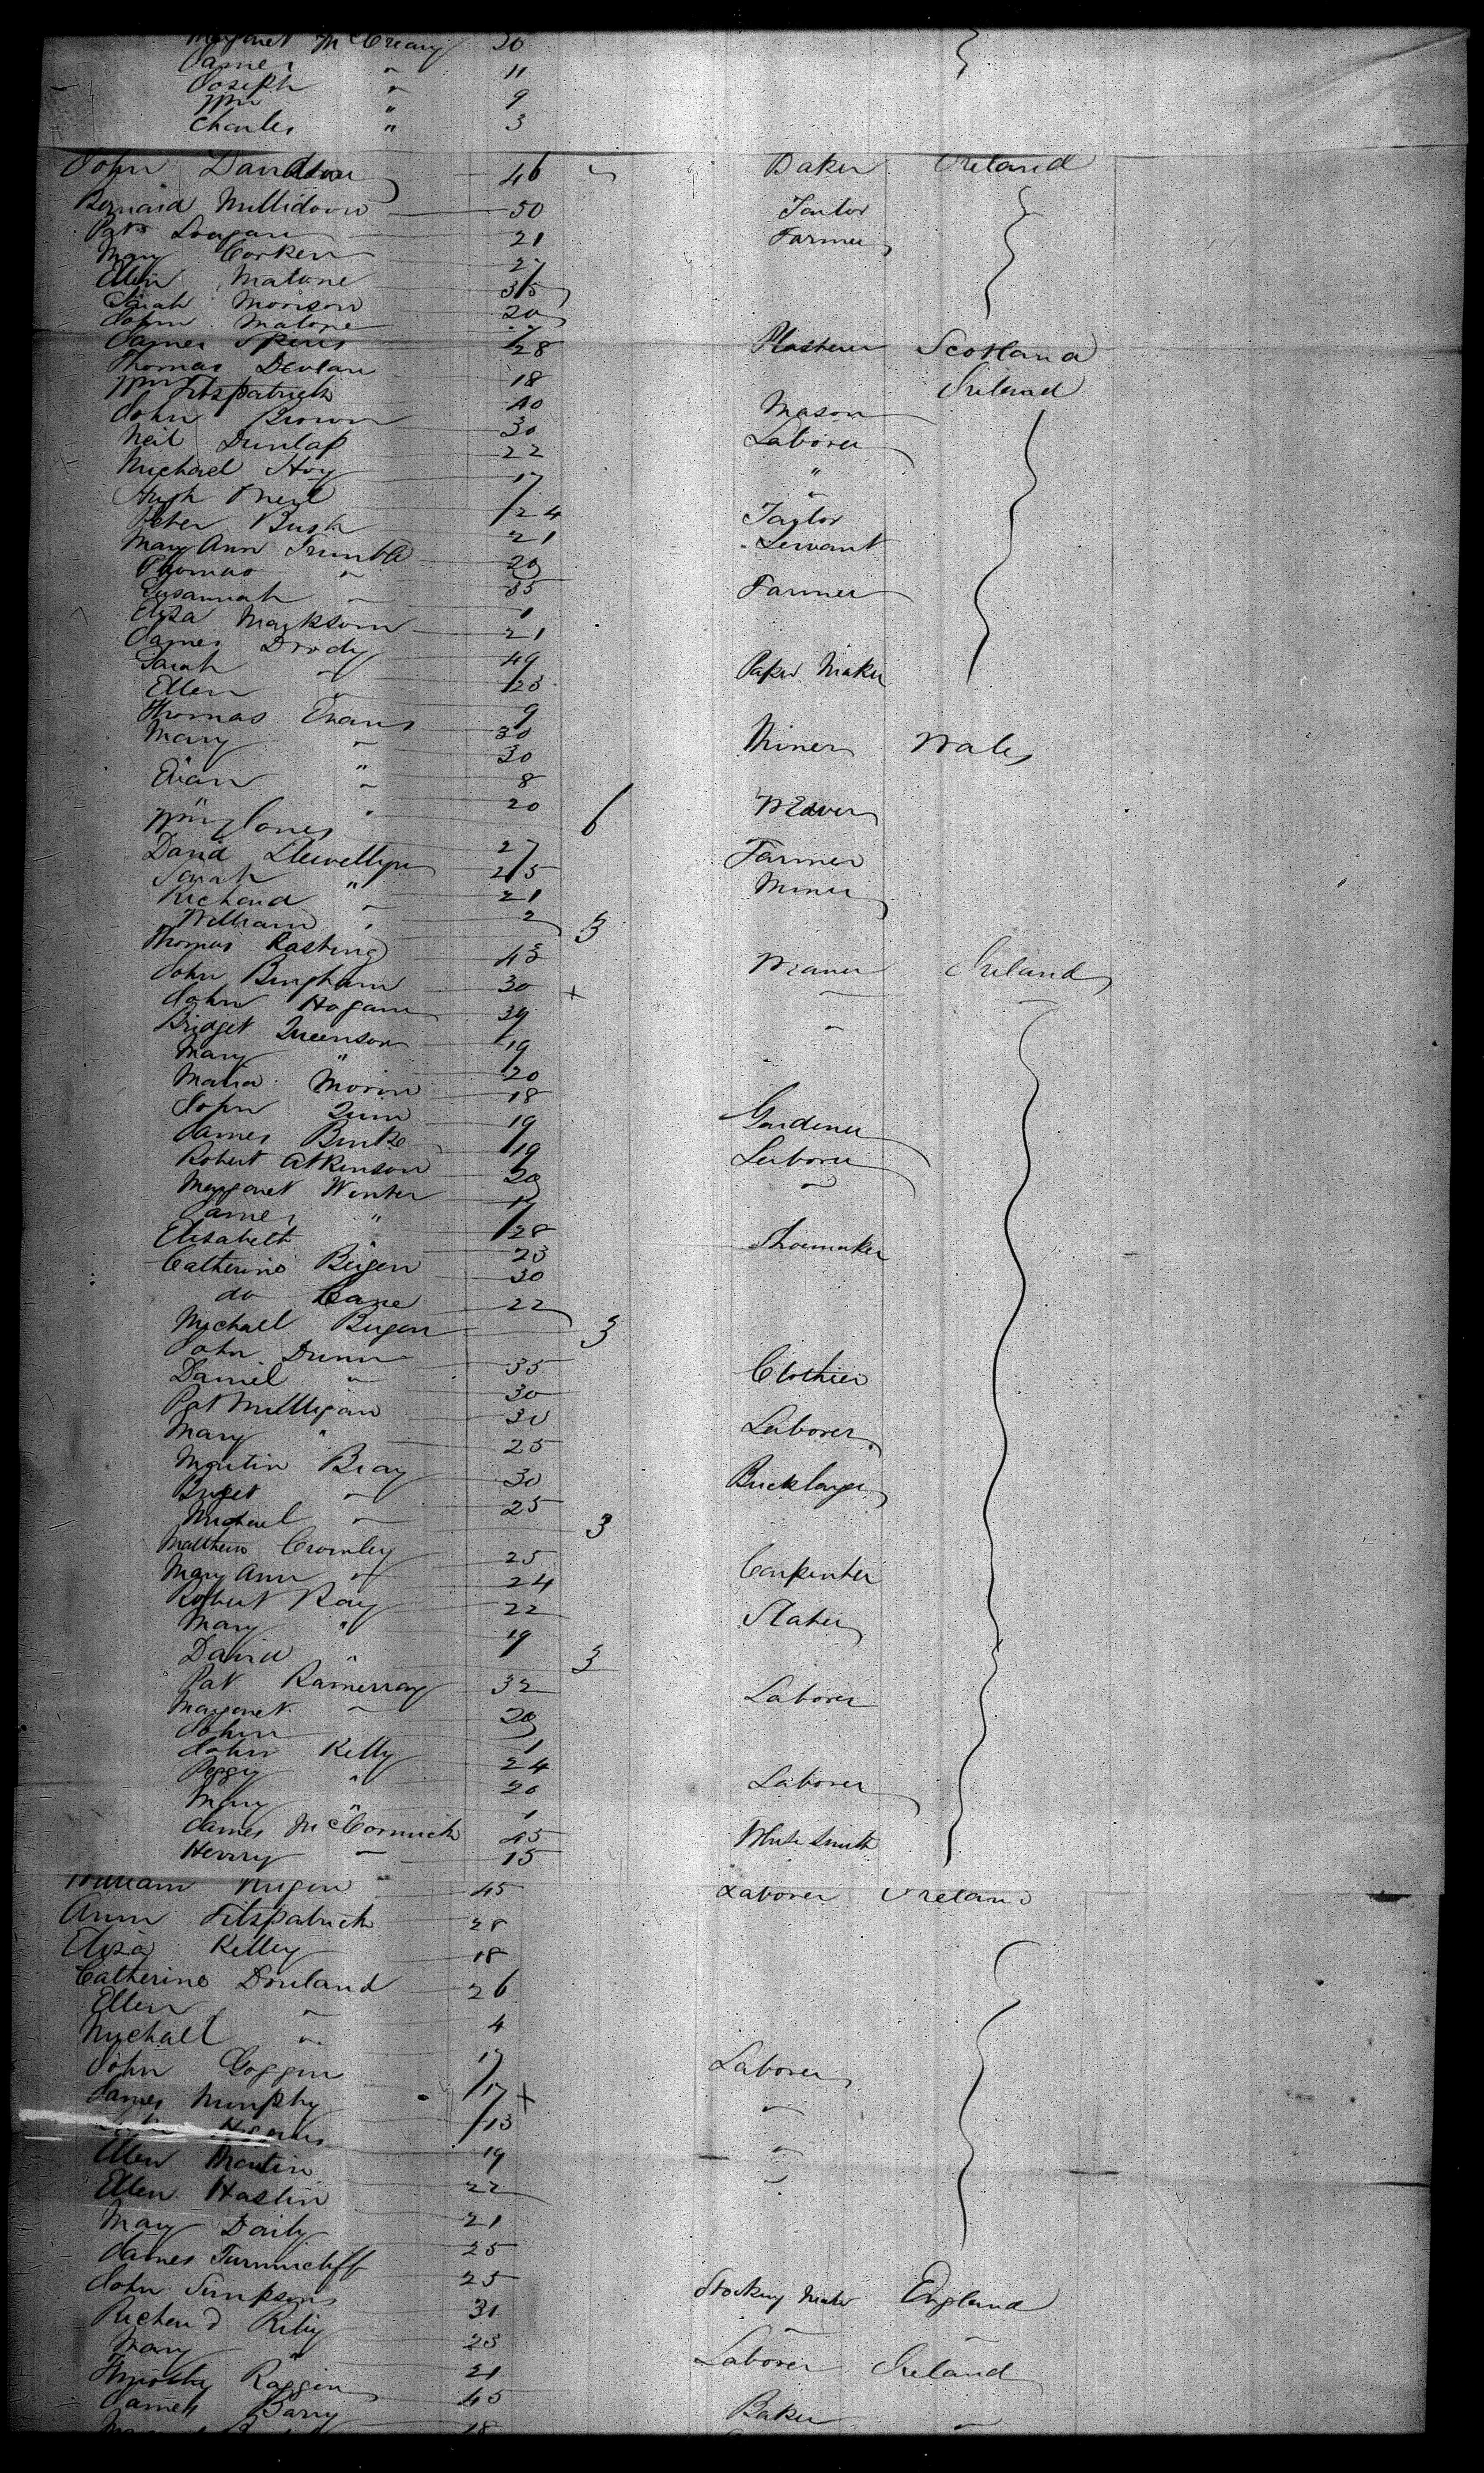 Margaret McCreary 20
James " 11
Joseph " 9
Wm " 9
Charles " 3
John Davidson 46 Baker Ireland
Bernard 50 Taylor
Pat Logan 21 Farmer
Mary Corken 27
Ellen Malone 35
Sarah Morison 20
John Malone 7
James Speirs 28 Plasterer Scotland
Thomas Devlan 18 Ireland
Wm Fitzpatrick 40 Mason
John Brown 30 Laborer
Neil Dunlap 22 "
Michael Hoy 17 "
Hugh ONeil 24 Taylor
Peter Bush 21 Servant
Mary Ann Trumble 20
Thomas " 35 Farmer
Susannah " 1
Eliza Marksom 21
James Drody 49 Paper Maker
Sarah " 23
Ellen " 9
Thomas Evans 30 Miner Wales
Mary " 30
Evan " 8
" " 20 Weaver
Wm Jones 6
David Llewellyn 27 Farmer
Sarah " 25 Miner
Richard " 21
William " 2 3
Thomas Rasting 43 Weaver Ireland
John Bingham 30 + "
John Hogan 39 "
Bridget Queenson 19
Mary " 20
Maria Morin 18
John Quin 19 Gardener
James Burke 19 Laborer
Robert Atkinson 20 "
Margaret Winter 17
James " 28 Shoemaker
Elizabeth " 23
Catherine Beigen 30
do Cane 22
Michael Beigen 3
John Dunn 35 Clothier
Daniel " 30
Pat Mulligan 30 Laborer
Mary " 25
Martin Bray 30 Bricklayer
Briget " 25
Michael " 3
Matthew Cromley 25 Carpenter
Mary Ann " 24
Robert Ray 22 Slater
Mary " 19
David " 3
Pat Ramerray 32 Laborer
Margaret " 20
John 1
John Kelly 24 Laborer
Peggy " 20
Mary " 1
James McCormick 45 White Smith
Henry " 15
William Nugen 45 Laborer Ireland
Ann Fitzpatrick 28
Eliza Kelley 18
Catherine Douland 26
Ellen " 4
Michael "
John Goggin 17 Laborer
James Murphy 17 + "
13 "
Ellen Martin 19 "
Ellen Haslin 22
Mary Daily 21
James Tunnicliff 25 Stocking Maker England
John Simpson 25 "
Richard Riley 31 Laborer Ireland
Mary " 23
Timothy Raggin 21 Baker "
James Barry 45
18